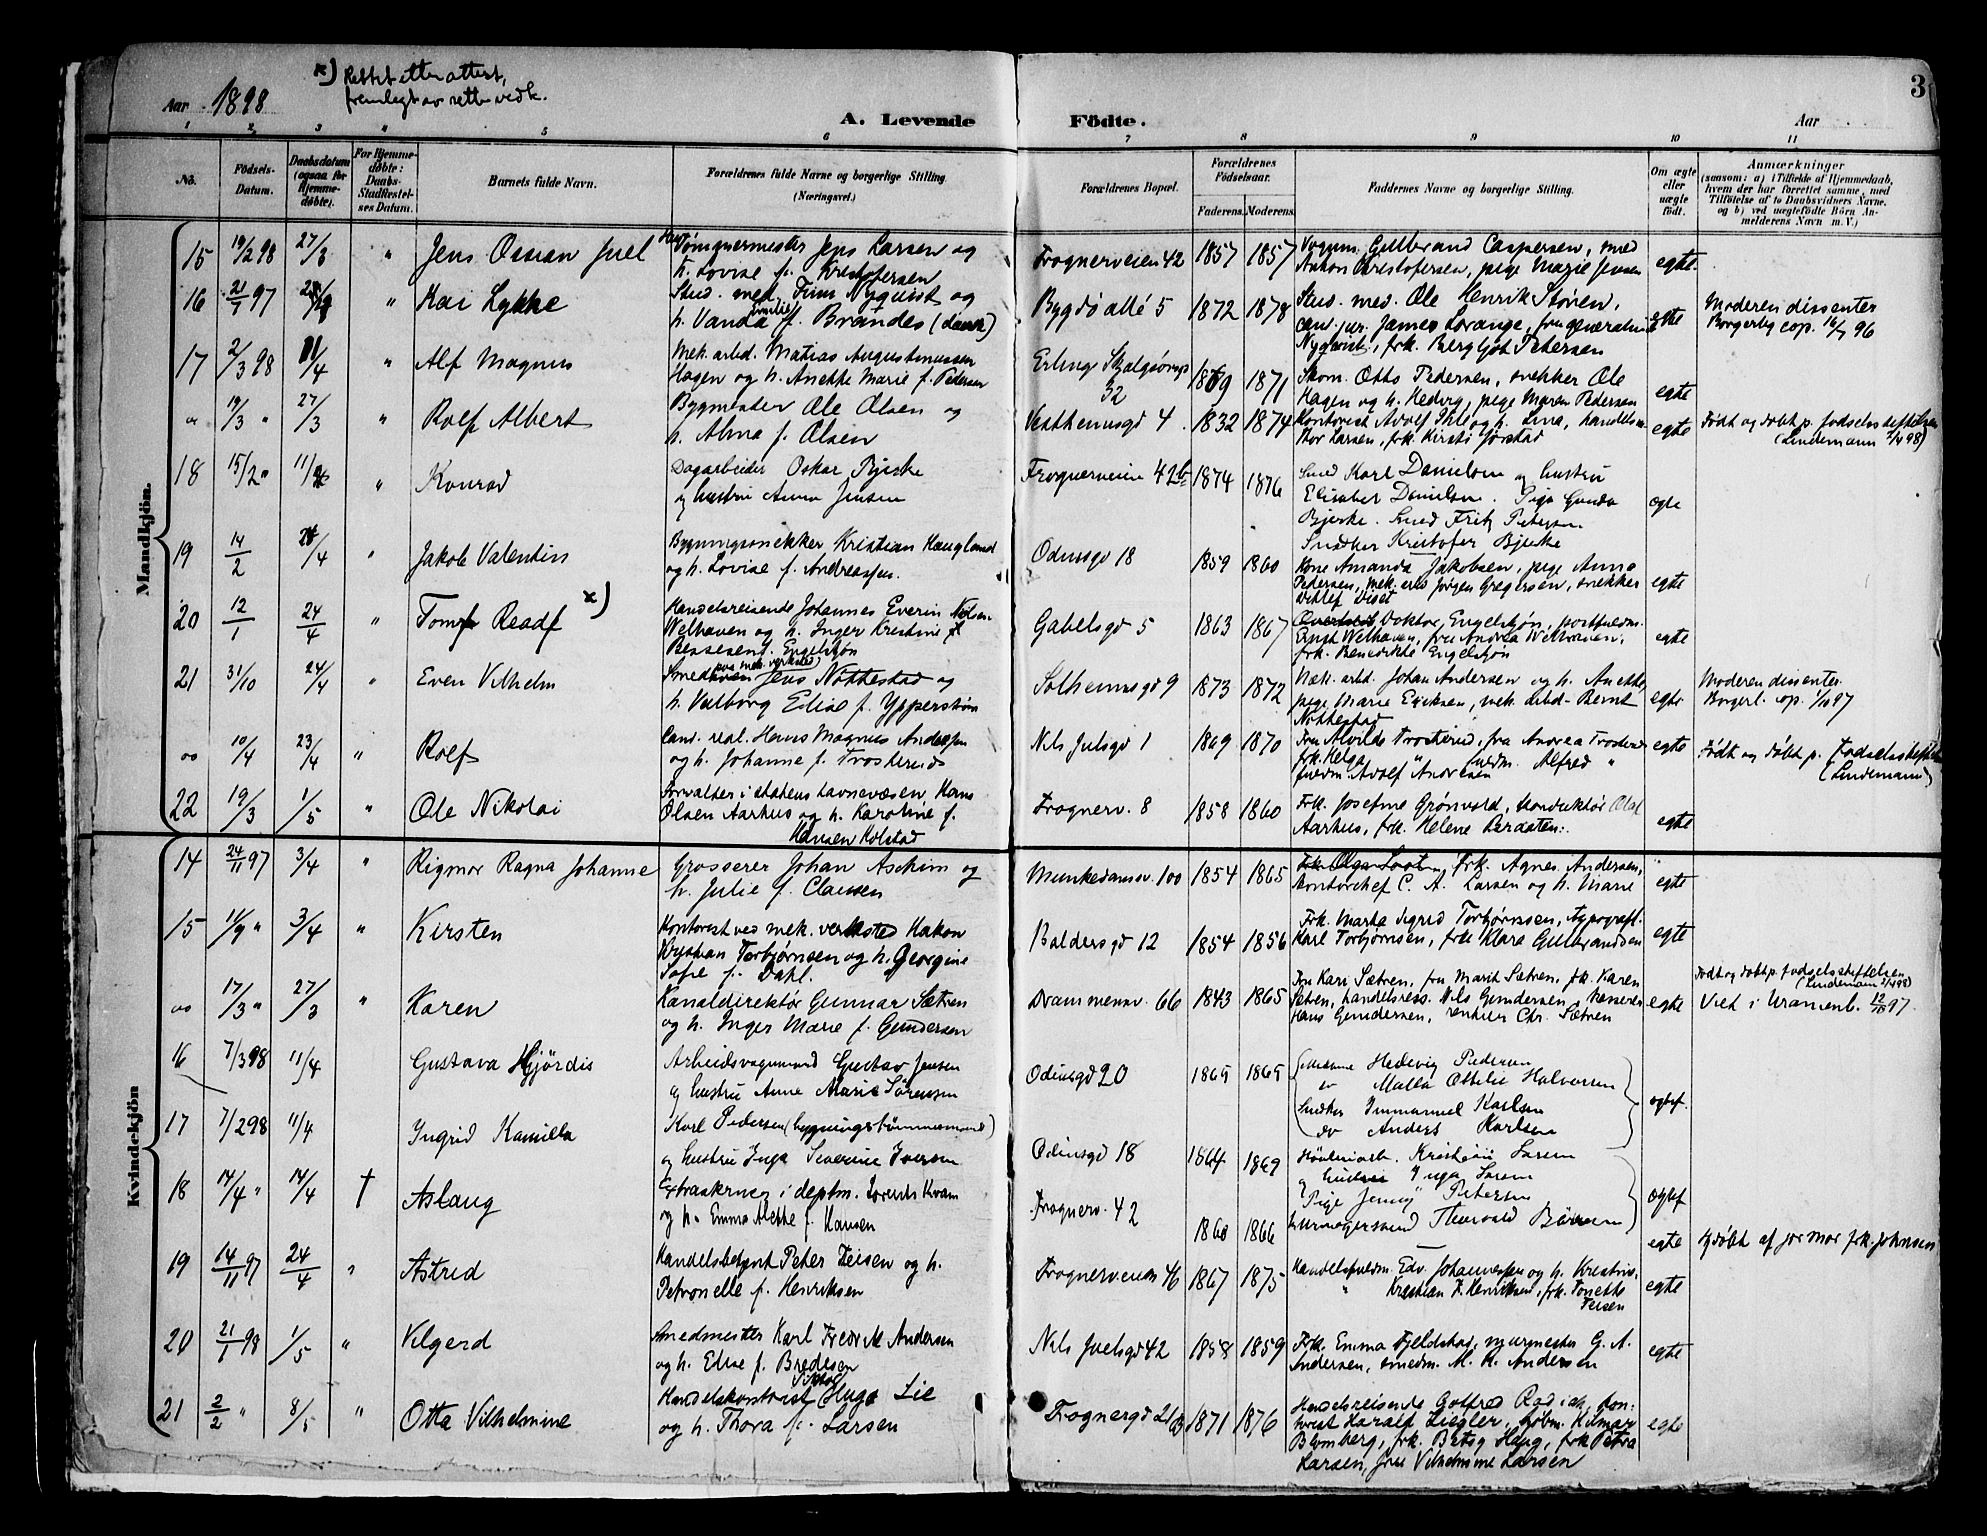 3
x) Rettet etter attest,
fremlagt av rette vedk.
Aar 1898
A. Levende Födte. Aar
1 2 3 4 5 6 7 8 9 10 11
No. Födsels-Datum. Daabsdatum (ogsaa for Hjemmedøbte). For Hjemmedøbte: Daabs-Stadfæstelses Datum. Barnets fulde Navn. Forældrenes fulde Navne og borgerlige Stilling. (Næringsvei.) Forældrenes Bopæl. Forældrenes Födselsaar. Faderens. Moderens. Faddernes Navne og borgerlige Stilling. Om ægte eller uægte født. Anmærkninger (saasom: a) i Tilfælde af Hjemmedaab, hvem der har forrettet samme, med Tilföielse af to Daabsvidners Navne. og b) ved uægtefödte Börn Anmelderens Navn m. V.)
Mandkjön.
15 19/2 98 27/3 " Jens Ossian Juel Tømmermester Jens Larsen og
h. Lovise f. Kristofersen
Frognerveien 42 1857 1857 Vognm. Gulbrand Caspersen, smed
Anton Kristofersen, pige Marie Jensen egte.
16 21/7 97 " Kai Lykke Stud. med. Finn Nyquist og
h. Vanda Emilie f. Brandes (dansk)
Bygdø allé 5 1872 1878 Stud. med. Ole Henrik Støren,
cand. jur. James Lorange, fru generalinde
Nyquist, frk. Bergljot Petersen
egte Moderen dissenter
Borgerlig cop. 16/7 96
17 2/3 98 11/4 " Alf Magnus Mek. arbd. Matias Augustinussen
Hagen og h. Anette Marie f. Pedersen
Erling Skjalgsøns gd 32 1869 1871 Skom. Otto Pedersen, snekker Ole
Hagen og h. Hedvig, pige Maren Pedersen egte
" 19/3 " 27/3 Rolf Albert Bygmester Ole Olsen og
h. Alma f. Olsen
Vestheimsgd 4 1832 1874 Kontorist Adolf Ihle og h. Lina, handelsm.
Thor Larsen, frk. Kirsti Jørstad egte Født og døbt p. fødselsstiftelsen
(Lindemann 2/4 98)
18 15/2 " 11/4 " Konrad Dagarbeider Oskar Bjerke
og hustru Anna Jensen
Frognerveien 42b 1874 1876 Smed Karl Danielsen og hustru
Elisabet Danielsen. Pige Gunda
Bjerke. Smed Fritz Petersen
Snedker Kristofer Bjerke
egte
19 14/2 24/4 " Jakob Valentin Bygningssnekker Kristian Haugland
og h. Lovise f. Andreassen.
Odinsgd 18 1859 1860 Kone Amanda Jakobsen, pige Anna
Pedersen, mek. arb. Jørgen Gregersen, snekker
Ditlef Viset
egte
20 12/1 24/4 " Tom Readf x) Handelsreisende Johannes Everin Nilsen
Welhaven og h. Inger Kristine f.
Bessesen f. Engelskjøn
Gabelsgd 5 1863 1867 Doktor Engelskjøn, postfuldm.
Ernst Welhaven, fru Andrea Welhaven,
frk. Benedikte Engelskjøn
egte
21 31/10 24/4 " Even Vilhelm Smed paa mek. verksted Jens Nøttestad og
h. Valborg Elise f. Ypperstøm
Solheimsgd 9 1873 1872 Mek. arbd. Johan Andersen og h. Anette,
pige Marie Eriksen, mek. arbd. Bernt
Nøttestad
egte Moderen dissenter.
Borgerl. cop. 1/10 97
" 10/4 23/4 " Rolf Cand. real. Hans Magnus Andersen
og h. Johanne f. Trosterud
Nils Julsgd 1 1869 1870 Fru Alvilde Trosterud, fru Andrea Trosterud
frk. Helga " fuldm. Alfred "
fuldm. Adolf Andresen
egte Født og døbt p. fødselsstiftelsen
(Lindemann)
22 19/3 1/5 " Ole Nikolai Forvalter i statens havnevæsen Hans
Olsen Aarhus og h. Karoline f.
Hansen Holstad
Frognerv. 8 1858 1860 Frk. Josefine Grønvold, konduktør Olaf
Aarhus, frk. Helene Braaten. egte
Kvindekjön
14 24/11 97 3/4 " Rigmor Ragna Johanne Grosserer Johan Aschim og
h. Julie f. Clausen
Munkedamsv. 100 1854 1865 frk. Agnes Andersen,
kontorchef C. A. Larsen og h. Marie egte
15 11/9 " 3/4 " Kirsten Kontorist ved mek. verksted Hakon
Kristian Torbjørnsen og h. Georgine
Sofie f. Dahl.
Baldersgd 12 1854 1856 Frk. Marta Sigrid Torbjørnsen, typograf
Karl Torbjørnsen, frk Klara Gulbrandsen egte
" 17/3 " 27/3 " Karen Kanaldirektør Gunnar Sætren
og h. Inger Marie f. Gundersen
Drammensv. 66 1843 1865 Fru Kari Sætren, fru Marit Sætren, frk. Karen
Sætren, handelsreis. Nils Gundersen, kasserer
Hans Gundersen, rentier Chr. Sætren
egte Født og døbt p. fødselsstiftelsen
(Lindemann 2/4 98)
Viet i Uranienb. 12/10 97.
16 7/3 98 11/4 Gustava Hjördis Arbeidsvognmand Gustav Jensen
og hustru Anne Marie Sörensen
Odinsgd 20 1865 1865 Hedevig Pedersen
do Malla Ottilie Halvorsen
Snedker Immanuel Karlsen
do Anders Karlsen
egtef.
17 7/2 98 11/4 Ingrid Kamilla Karl Pedersen (bygningstømmermand)
og hustru Inga Severine Iversen
Odinsgd 18 1864 1869 Kristian Larsen
og hustru Inga Larsen
Pige Jenny Petersen
Urmagersvend Thorvald Börresen
egtef
18 14/4 " 14/4 † Aslaug Extraskriver i deptm. Lorents Kvam
og h. Emma Alette f. Hansen
Frognerv. 42 1860 1866 egte Hjdøbt af jormor frk. Johnsen
19 14/11 97 24/4 " Astrid Handelsbetjent Peter Teisen og h.
Petronelle f. Henriksen
Frognerveien 46 1867 1875 Handelsfuldm. Edv. Johannessen og h. Kristine,
" Kristian F. Henriksen, frk. Tonette
Teisen
egte
20 21/1 98 1/5 " Vilgerd Smedmester Karl Fredrik Andersen
og h. Elise f. Bredesen
Nils Juelsgd 42 1858 1859 Frk. Emma Fjeldstad, murmester G. A.
Andersen, smedm. M. K. Andersen egte
21 2/2 " 8/5 " Otta Vilhelmine Handelskontorist Hugo Lie
og h. Thora f. Larsen
Frognergd 21b 1871 1876 Handelsreisende Gotfred Radich, kontorist
Harald Ziegler, kjøbm. Hilmar
Blomberg, frk. Betsy Haug, frk Petra
Larsen, fru Vilhelmine Larsen
egte